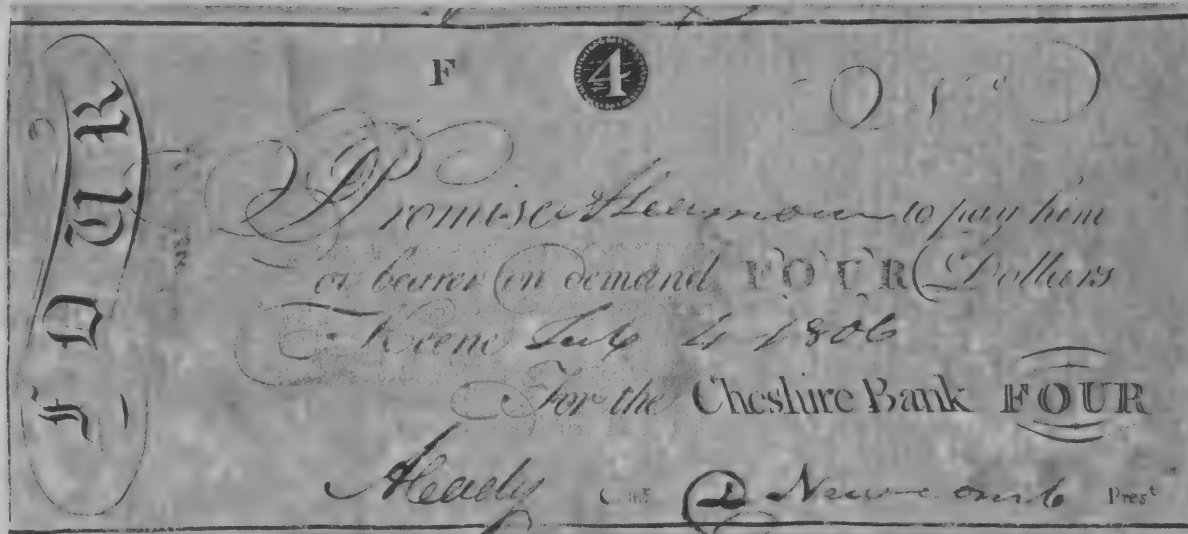 FOUR
F 4
Promise to pay him
or bearer on demand FOUR Dollars
Keene July 4 1806
For the Cheshire Bank FOUR
Cas D Newcomb Prest